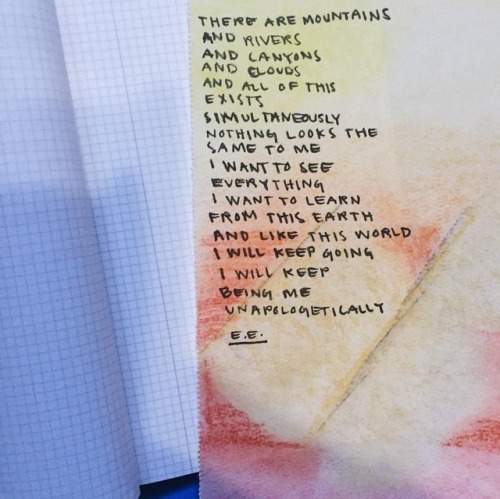 THERE ARE MOUNTAINS
AND RIVERS
AND CANYONS
AND CLOUDS
AND ALL OF THIS
EXISTS
SIMULTANEOUSLY
NOTHING LOOKS THE
SAME TO ME
I WANT TO SEE
EVERYTHING
I WANT TO LEARN
FROM THIS EARTH
AND LIKE THIS WORLD
I WILL KEEP GOING
I WILL KEEP
BEING ME
UNAPOLOGETICALLY
E.E.